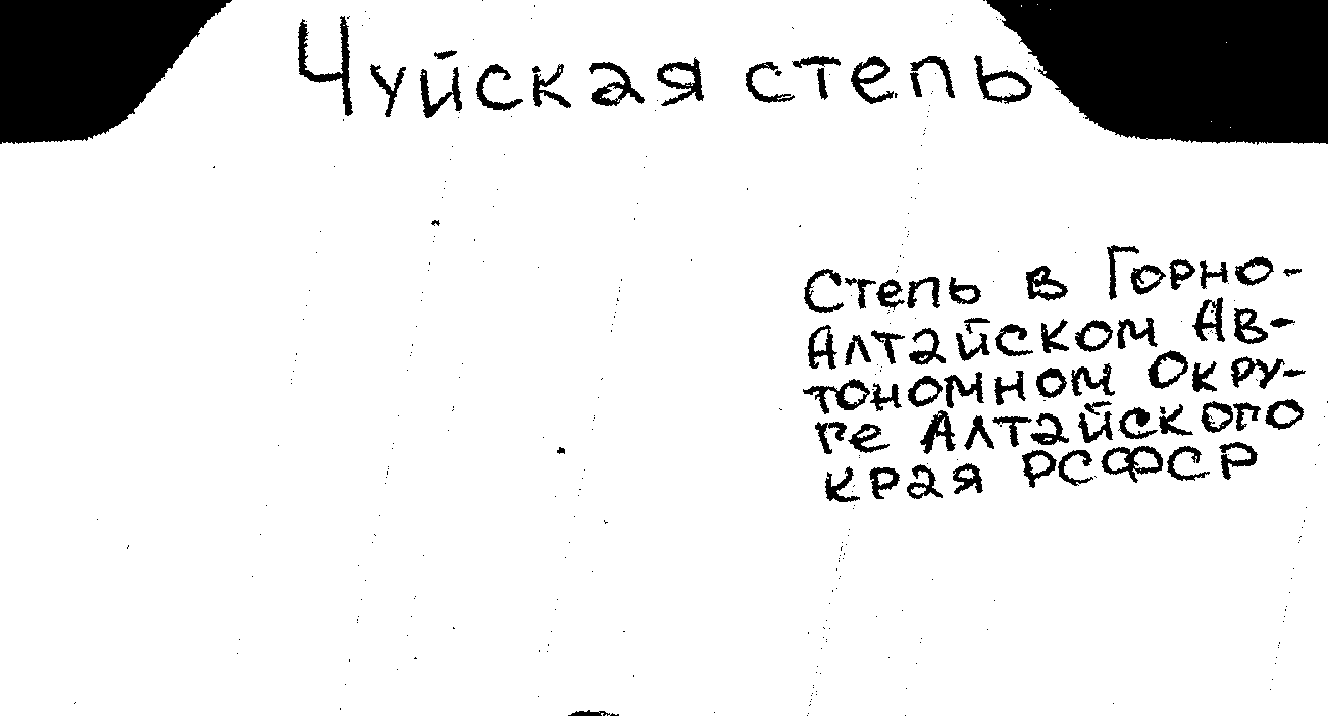 Чуйская степь
Степь в Горно-
Алтайском Ав-
тономном Окру-
ге Алтайского
края РСФСР